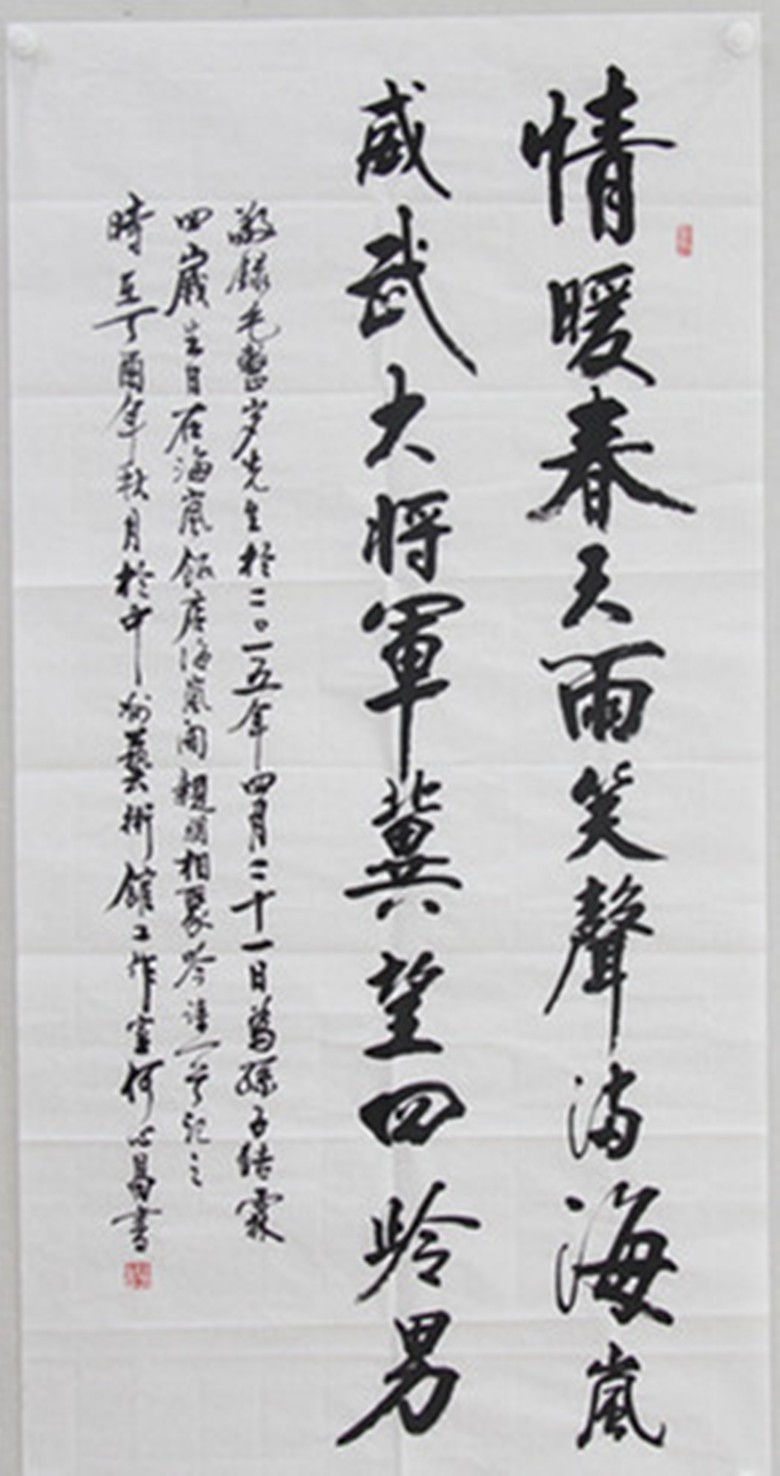 情暖春天雨笑聲满海嵐
威武大將軍冀望四齡男
敬録毛 岁先生於二〇一五年四月二十一日為孫子结霖
四歲生日在海嵐飯店海嵐阁親朋相聚 诗一首记之
時在丁酉年秋月於中 藝術館工作室何心易書